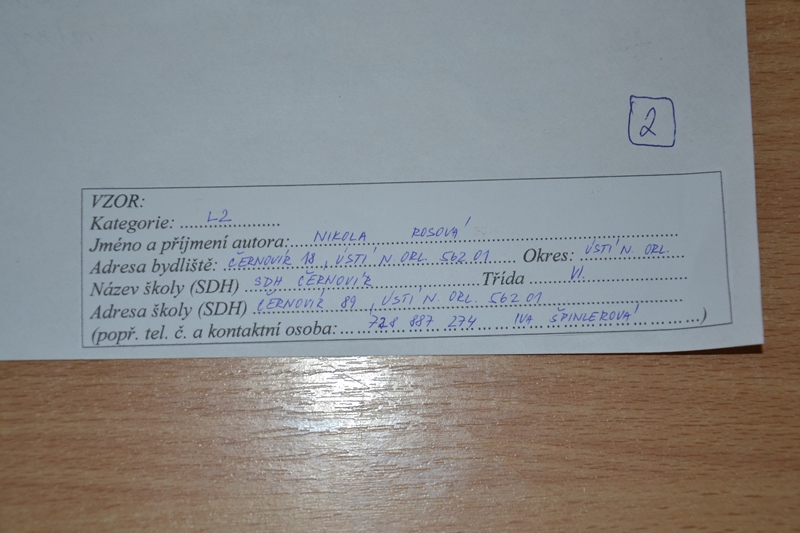 2
VZOR:
Kategorie: ...L2...............
Jméno a příjmení autora:....NIKOLA ROSOVÁ.......
Adresa bydliště: ČERNOVÍR 18, ÚSTÍ N. ORL. 562 01 .... Okres: ÚSTÍ N. ORL.
Název školy (SDH) SDH ČERNOVÍR............Třída.......VI.......
Adresa školy (SDH) ČERNOVÍR 89, ÚSTÍ N. ORL. 562 01
(popř. tel. č. a kontaktní osoba:... 728 887 274 ... IVA ŠPINLEROVÁ ...)